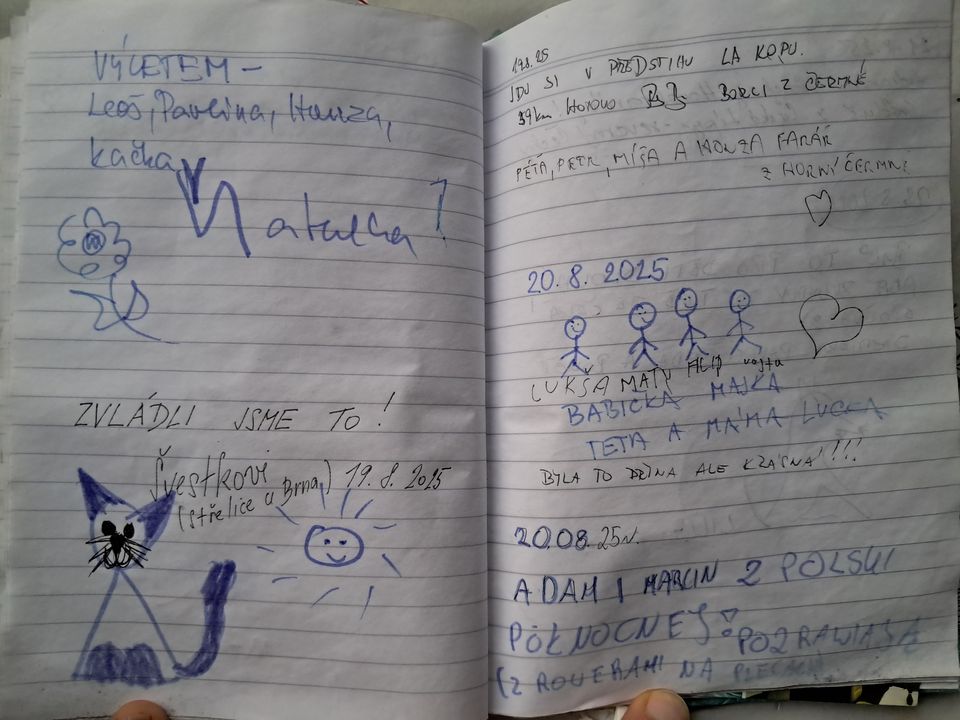 VÝLETEM –
Leoš, Pavlína, Honza,
kačka,
Natulka!
ZVLÁDLI JSME TO!
Švestkovi
(střelice u Brna) 19. 8. 2025
19.8.25
JDU SI V PŘEDSTIHU LA KOPU.
39km HOTOVO BORCI Z ČERMNÉ
PÉTÁ, PETR, MÍŠA A HONZA FARÁŘ
Z HORNÍ ČERMNÉ
20. 8. 2025
LUKŠA MATY FILIP vojta
BABIČKA MAJKA
TETA A MÁMA LUCKA
BYLA TO DŘINA ALE KRÁSNÁ!!!
20.08.25r.
ADAM I MARCIN Z POLSKI
PÓŁNOCNEJ POZDRAWIAJĄ
(Z ROWERAMI NA PLECACH